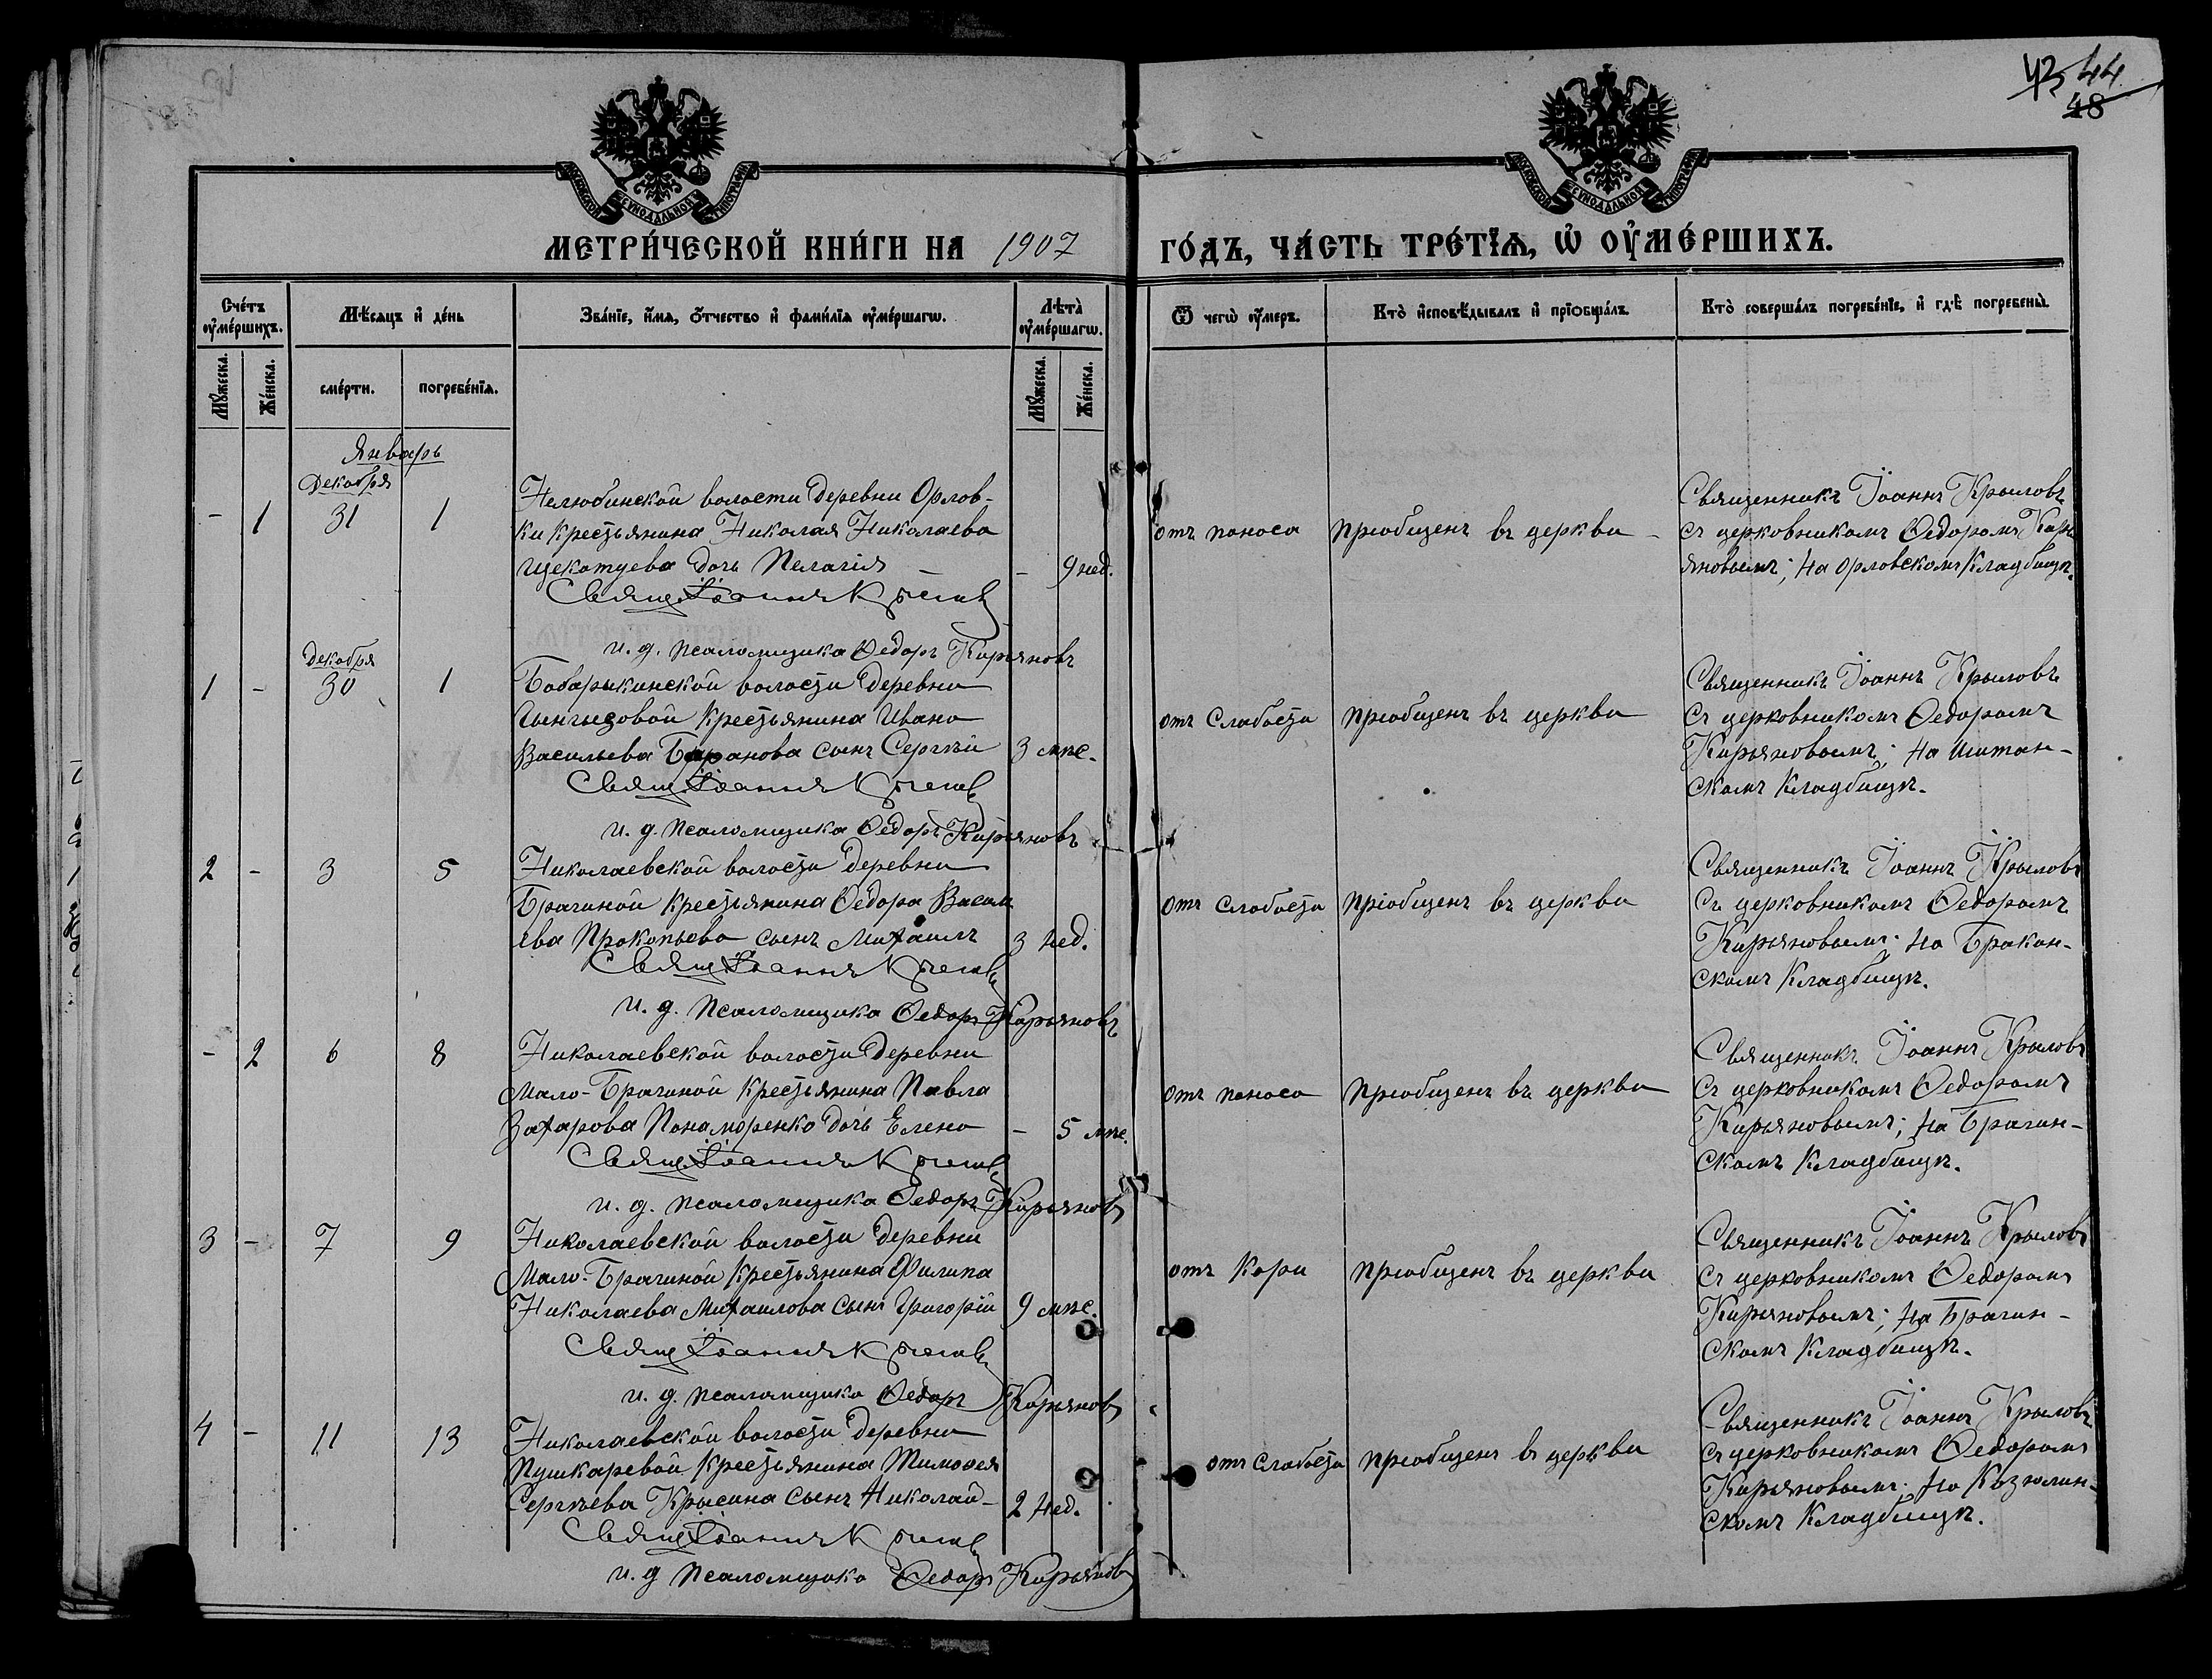 43 44
48
МОСКОВСКОЙ СѴНОДАЛЬНОЙ ТИПОГРАФІИ
МОСКОВСКОЙ СѴНОДАЛЬНОЙ ТИПОГРАФІИ
МЕТРИ́ЧЕСКОЙ КНИ́ГИ НА 1907 ГО́ДЪ, ЧА́СТЬ ТРЕ́ТІѦ, Ѡ҆ ОУ҆МЕ́РШИХЪ.
Сче́тъ оу҆ме́ршихъ.
Мѣ́сяцъ и҆ де́нь
Зва́нїе, и҆́мя, ѻ҆́тчество и҆ фами́лїя оу҆ме́ршагѡ.
Лѣта̀ оу҆ме́ршагѡ.
Ѿ чегѡ̀ оу҆́меръ.
Кто̀ и҆сповѣ́дывалъ и҆ прїѻбща́лъ.
Кто̀ соверша́лъ погребе́нїе, и҆ гдѣ̀ погребены̀.
Мꙋ́жеска.
Же́нска.
сме́рти.
погребе́нїѧ.
Мꙋ́жеска.
Же́нска.
Январь
Декабря
- 1 31 1
Нелюбинской волости деревни Орлов-
ки крестьянина Николая Николаева
Щекотуева дочь Пелагія - 9 нед.
Свящ. Іоаннъ Крылов
и. д. псаломщика Ѳедоръ Кирьяновъ
отъ поноса
приобщенъ въ церкви -
Священникъ Іоаннъ Крыловъ
съ церковникомъ Ѳедоромъ Кирь
яновымъ; на Орловскомъ кладбищѣ.
Декабря
1 - 30 1
Бабарыкинской волости деревни
Чынгызовой крестьянина Ивана
Васильева Баранова сынъ Сергѣй 3 мѣс.
Свящ. Іоаннъ Крылов
и. д. псаломщика Ѳедоръ Кирьяновъ
отъ слабости
приобщенъ въ церкви
Священникъ Іоаннъ Крыловъ
съ церковникомъ Ѳедоромъ
Кирьяновымъ; на Иштан-
скомъ кладбищѣ.
2 - 3 5
Николаевской волости деревни
Брагиной крестьянина Ѳедора Васил
ева Прокопьева сынъ Михаилъ 3 нед.
Свящ. Іоаннъ Крылов
и. д. псаломщика Ѳедоръ Кирьяновъ
отъ слабости
пріобщенъ въ церкви
Священникъ Іоаннъ Крыловъ
съ церковникомъ Ѳедоромъ
Кирьяновымъ; на Бракин-
скомъ кладбищѣ.
- 2 6 8
Николаевской волости деревни
Мало-Брагиной крестьянина Павла
Захарова Понаморенко дочь Елена - 5 мѣс.
Свящ. Іоаннъ Крылов
и. д. псаломщика Ѳедоръ Кирьяновъ
отъ поноса
приобщенъ въ церкви
Священникъ Іоаннъ Крыловъ
съ церковникомъ Ѳедоромъ
Кирьяновымъ; на Брагин-
скомъ кладбищѣ.
3 - 7 9
Николаевской волости деревни
Мало-Брагиной крестьянина Филипа
Николаева Михаилова сынъ Григорій 9 мѣс.
Свящ. Іоаннъ Крылов
и. д. псаломщика Ѳедоръ Кирьяновъ
отъ кори
приобщенъ въ церкви
Священникъ Іоаннъ Крыловъ
съ церковникомъ Ѳедоромъ
Кирьяновымъ; на Брагин-
скомъ кладбищѣ.
4 - 11 13
Николаевской волости деревни
Пушкаревой крестьянина Тимоѳея
Сергѣева Крысина сынъ Николай - 2 нед.
Свящ. Іоаннъ Крылов
и. д. псаломщика Ѳедоръ Кирьяновъ
отъ слабости
приобщенъ въ церкви
Священникъ Іоаннъ Крыловъ
съ церковникомъ Ѳедоромъ
Кирьяновымъ; на Козюлин-
скомъ кладбищѣ.